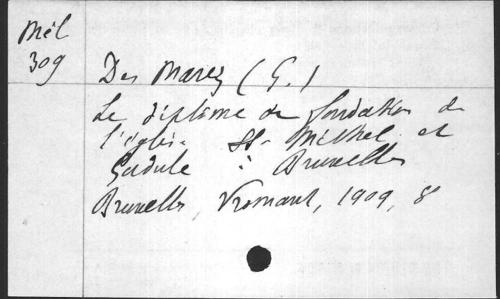 Mél
309
Des Marez (G.)
Le diplôme de fondation de
l'église SS. Michel et
Gudule à Bruxelles
Bruxelles, Vromant, 1909, 8°